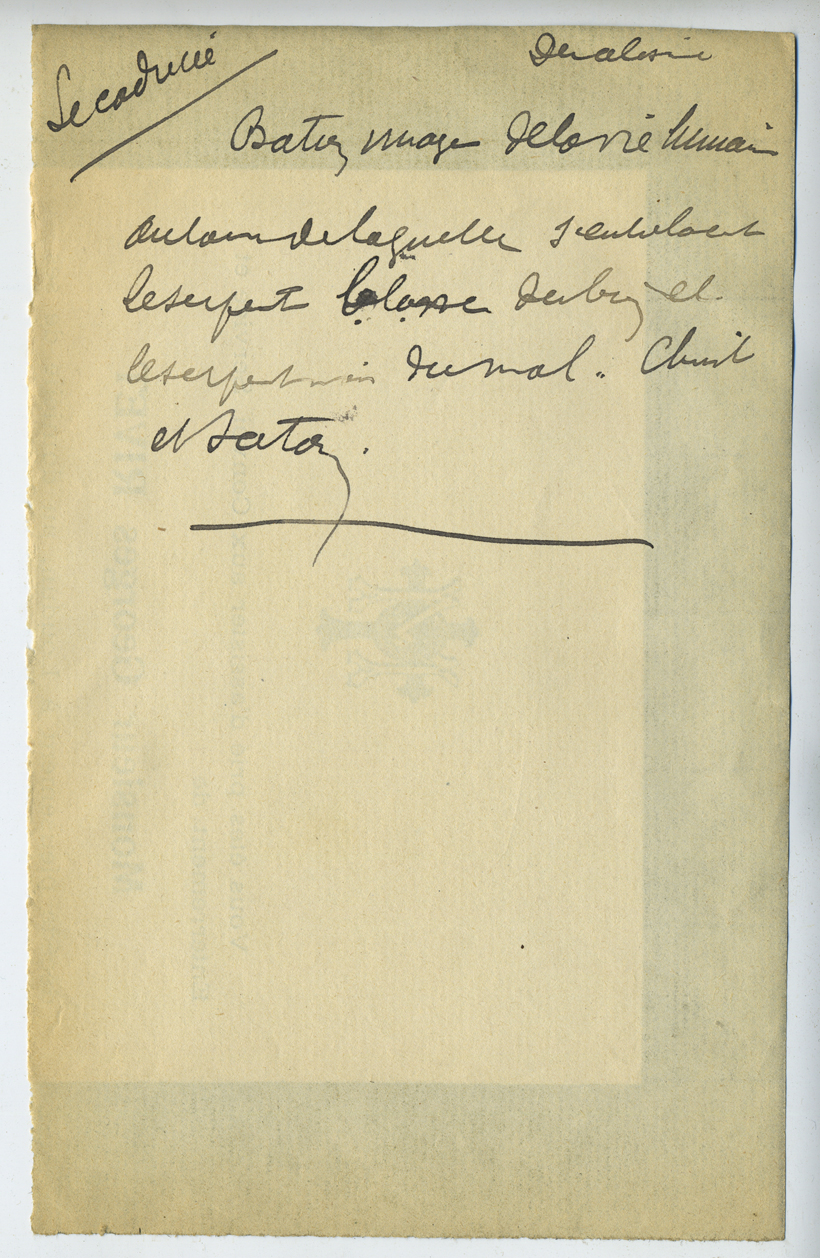 Le caducée
Baton image de la vie humaine
autour de laquelle s'entrelacent
le serpent blanc du bien et
le serpent noir du mal. Christ
et Satan.